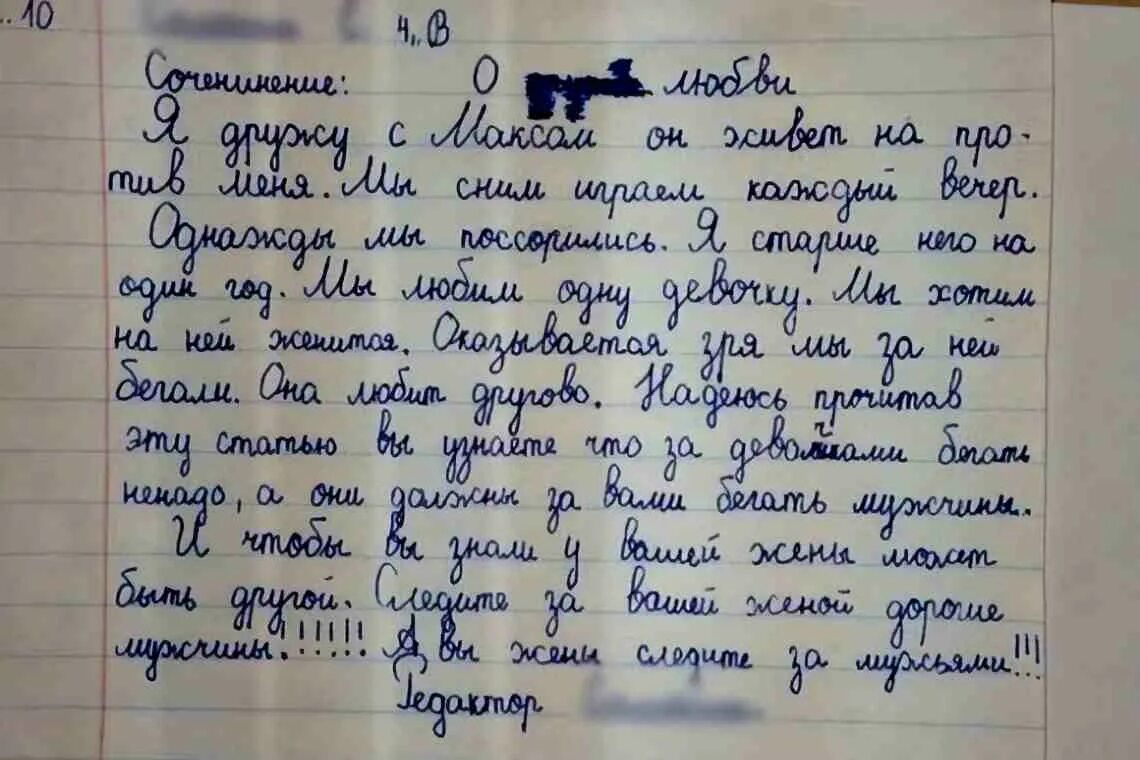 ..10
4„В
Соченинение: О любви
Я дружу с Максом он живет на про-
тив меня. Мы сним играем каждый вечер.
Однажды мы поссорились. Я старше него на
один год. Мы любим одну девочку. Мы хотим
на ней женится. Оказывается зря мы за ней
бегали. Она любит другово. Надеюсь прочитав
эту статью вы узнаете что за девочками бегать
ненадо, а они должны за вами бегать мужчины.
И чтобы вы знали у вашей жены может
быть другой. Следите за вашей женой дорогие
мужчины!!!!!!! А вы жены следите за мужьями!!!
Редактор